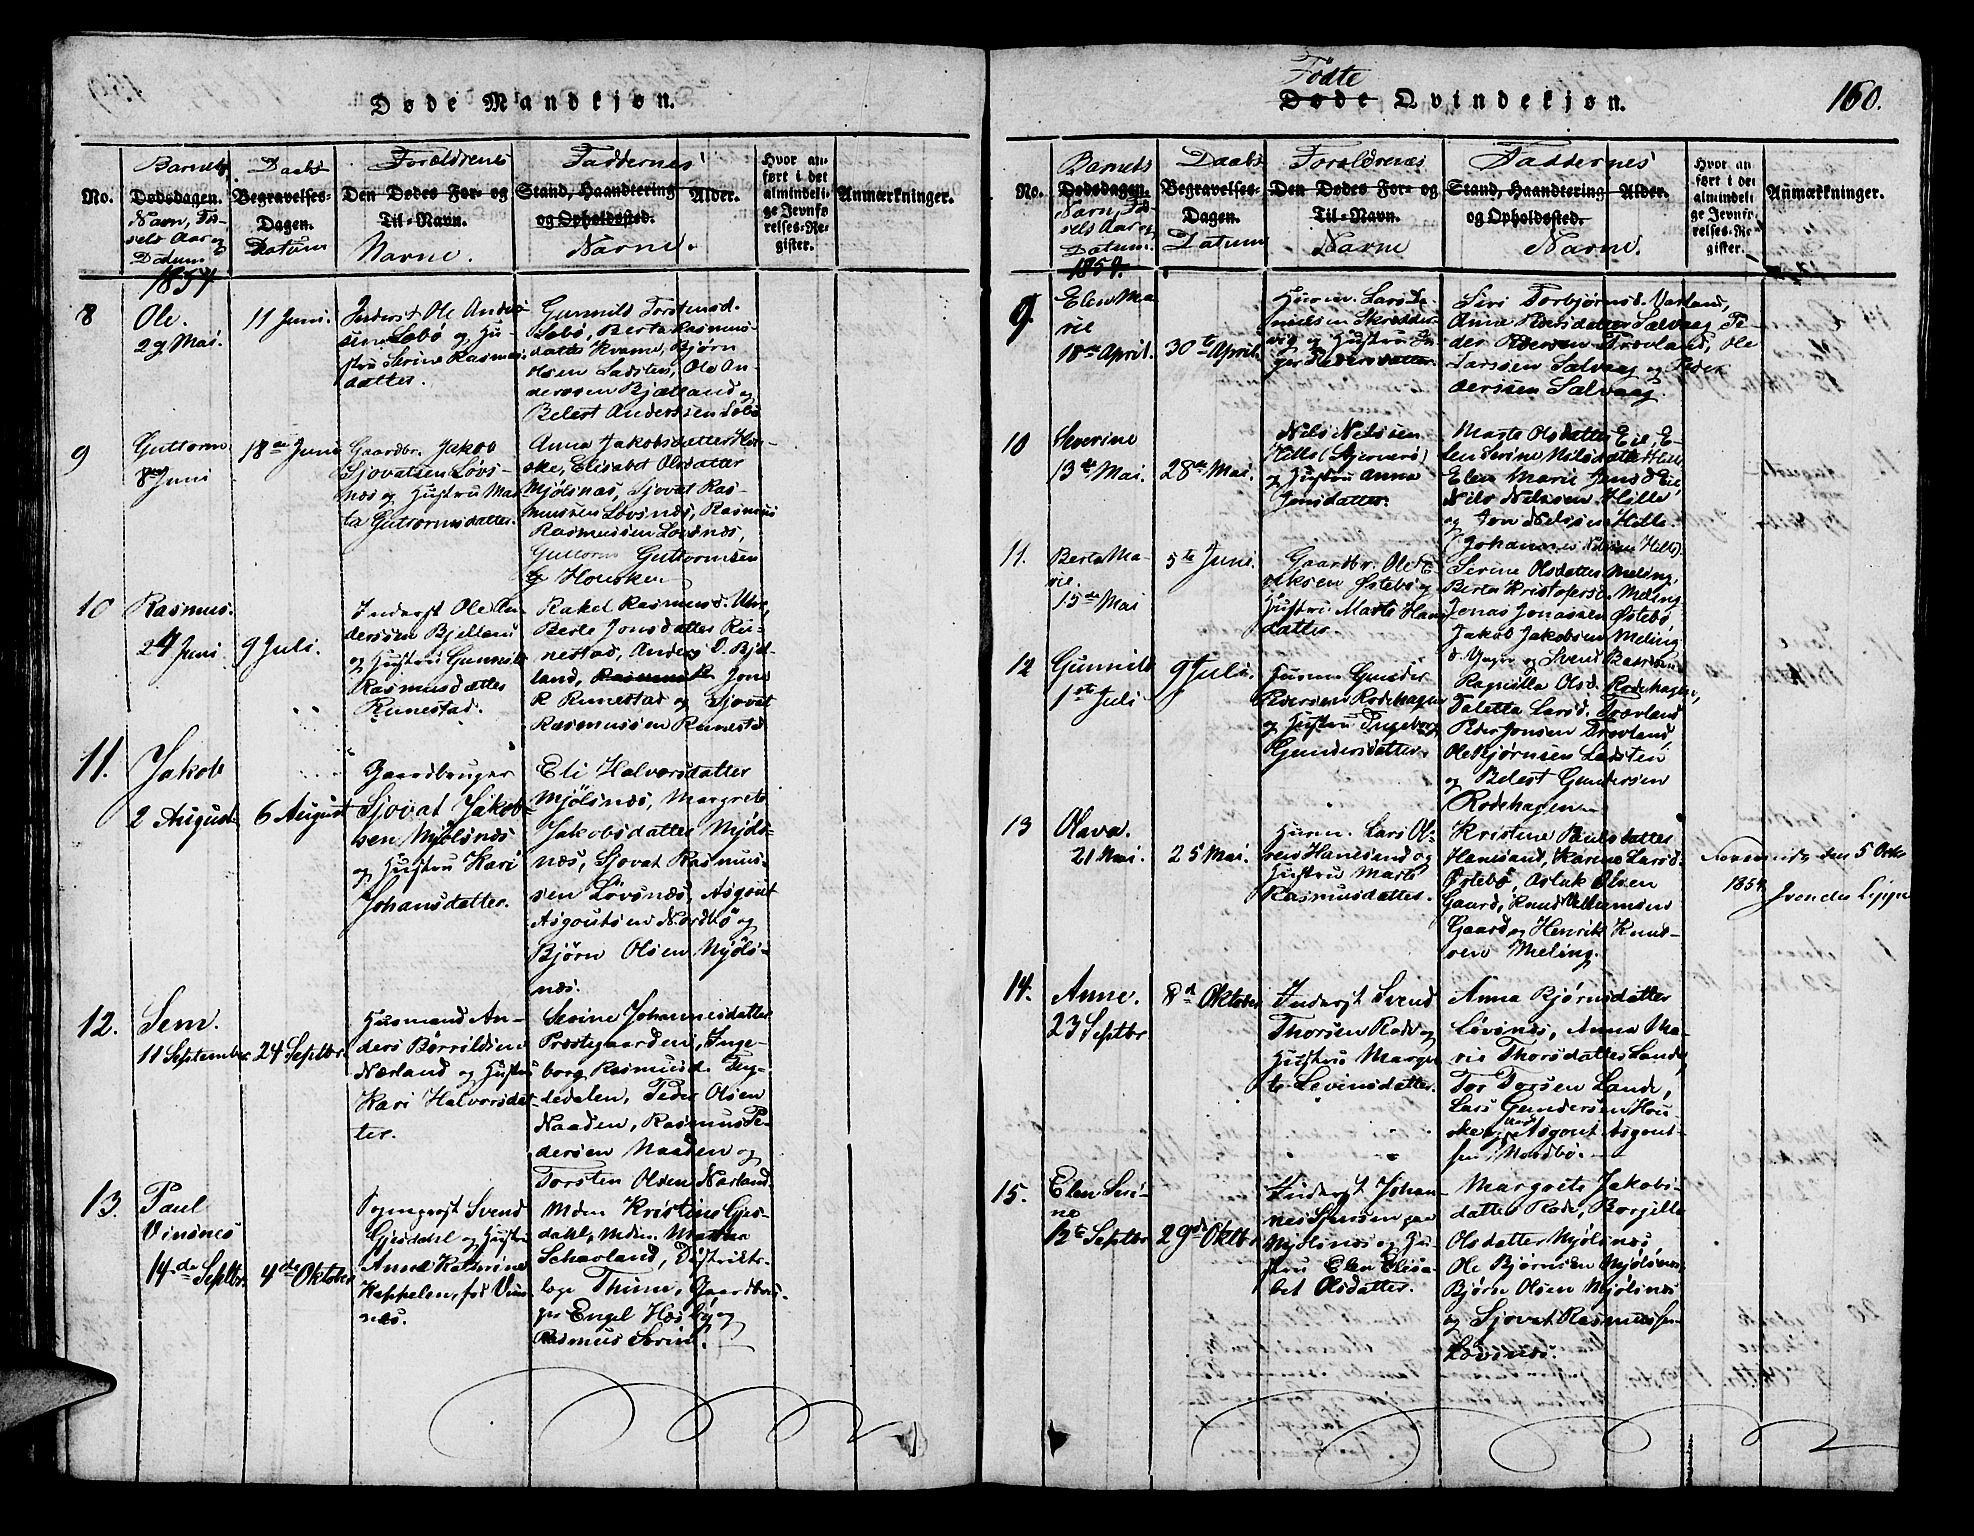 Døde Mandkjøn.
No.
Barnets
Dødsdagen.
Navn, Fø-
sels Aar og
Datum
Daabs
Begravelses-
Dagen.
Datum
Forældrenes
Den Dødes For- og
Til-Navn.
Navne.
Faddernes
Stand, Haandtering
og Opholdssted.
Navne.
Alder.
Hvor an-
ført i det
almindeli-
ge Jevnfø-
relses-Re-
gister.
Anmærkninger.
1854
8
Ole.
29 Mai.
11 Juni.
Inderst Ole Ander-
sen Lebø og Hu-
stru Serine Rasmus-
datter.
Gunnild Torstensd.
Lebø, Berta Rasmus-
datter Kvame, Bjørn
Olsen Ladsten, Ole An-
dersen Bjelland og
Belest Anderssen Lebø
9
Guttorm
8 Juni
18de Juni
Gaardbr. Jakob
Sjovatsen Løvs-
næs og Hustru Mar-
ta Guttormsdatter.
Anna Jakobsdatter Hou-
ske, Elisabet Olsdatter
Mjølsnæs, Sjovat Ras-
mussen Løvsnæs, Rasmus
Rasmussen Løvsnæs,
Guttorm Guttormsen
Housken
10
Rasmus.
24 Juni
9 Juli.
Inderst Ole An-
derssen Bjelland
og Hustru Gunnild
Rasmusdatter
Runestad.
Rakel Rasmusd.
Berte Jonsdatter Ru-
nestad, Anders O. Bjel-
land, Rasmus R Jone
R Runestad og Sjovat
Rasmussen Runestad
11.
Jakob
2 August
6 August
Gaardbruger
Sjovat Jakob-
sen Mjølsnæs
og Hustru Kari
Johansdatter.
Eli Halvorsdatter
Mjølsnæs, Margrete
Jakobsdatter Mjøls-
næs, Sjovat Rasmus-
sen Løvsnæs, Asgout
Asgoutsen Nordbø og
Bjørn Olsen Mjøls-
næs.
12.
Sem.
11 September
24 Septbr.
Husmand An-
ders Børrildsen
Nærland og Hustru
Kari Halvorsdat-
ter.
Serine Johannesdatter
Præstegaarden, Inge-
borg Rasmusd. Tig-
tedalen, Peder Olsen
Naaden, Rasmus Pe-
dersen Naaden og
Torsten Olsen Nærland.
13.
Paul
Vinsnes
14de Septbr.
4de Oktober
Sogneprest Svend
Gjesdahl og Hustru
Anna Kathrine
Kappelen, fød Vins-
nes.
Mdm Kristine Gjes-
dahl, Mdm. Martha
Schavland, Distrikts-
læge Thime, Gaardbru-
ger Engel Hæsby og
Rasmus Serine.
Fødte
Døde Qvindekjøn.
160.
No.
Barnets
Dødsdagen.
Navn, Fø-
sels Aar og
Datum.
Daabs
Begravelses-
Dagen.
Datum
Forældrenes
Den Dødes For- og
Til-Navn.
Navne
Faddernes
Stand, Haandtering
og Opholdssted.
Navne.
Alder.
Hvor an
ført i det
almindeli
ge Jevnfø
relses-Re
gister.
Anmærkninger.
1854.
9.
Elen Ma-
rie
18de April.
30te April.
Husm. Lars Da-
nielsen Skredder-
vig og Hustru In-
ger Pedersdatter.
Siri Torbjørnsd. Varland,
Anna Pedersdatter Salvaag, Pe-
der Pedersen Trovland, Ole
Larssen Salvaag og Peder
Pedersen Salvaag.
10
Severine
13de Mai.
28de Mai.
Nils Nelssen
Hille (Stjernerø)
og Hustru Anna
Jonsdatter.
Marte Olsdatter Eie, E-
len Serine Nilsdatter Hille
Elen Marie Jansd Eie,
Nils Nelssen Hille,
og Jon Nelssen Hille.
Johannes Nelssen Hille.
11.
Berta Ma-
rie.
15de Mai
5te Juni.
Gaardbr. Ole E-
riksen Østebø og
Hustru Marte Hans-
datter.
Serine Olsdatter Meling,
Berta Kristofersd. Meling
Jonas Jonassen Østebø
Jakob Jakobsen Meling
d. Yngre og Svend
12
Gunnild
1ste Juli
9 Juli.
Husm. Gunder
Pedersen Rodehagen
og Hustru Ingeborg
Gundersdatter.
Ragnilla Olsd. Rodehagen,
Taletta Larsd. Trovland
Peder Jonsen Trovland
Ole Bjørnsen Ladsten
og Belest Gundersen
Rodehagen
13
Olava.
21 Mai.
25 Mai.
Husm. Lars Ol-
sen Hanesand og
Hustru Marte
Rasmusdatter.
Kristine Paulsdatter
Hanesand, Karine Larsd.
Østebø, Oslak Olsen
Gaard, Knud Villumsen
Gaard og Henrik Knud-
sen Meling.
den 5 Octo
1854
14.
Anne.
23 Septbr
8d Oktober
Inderst Svend
Thorsen Rode og
Hustru Margre-
te Levinsdatter.
Anna Bjørnsdatter
Løvsnæs, Anna Ma-
rie Thorsdatter Lande,
Tor Torsen Lande,
Lars Gundersen Hou-
ske og Asgout Asgout-
sen Nordbø.
15.
Elen Seri-
ne
12te Septbr
29de Oktbr
Inderst Johan-
nes Simonsen paa
Mjølsnæs og Hu-
stru Elen Elisa-
bet Olsdatter.
Margrete Jakobs-
datter Rode, Borgille
Olsdatter Mjølsnæs
Ole Bjørnsen Mjølsnæs,
Bjørn Olsen Mjølsnæs
og Sjovat Rasmussen
Løvsnæs.